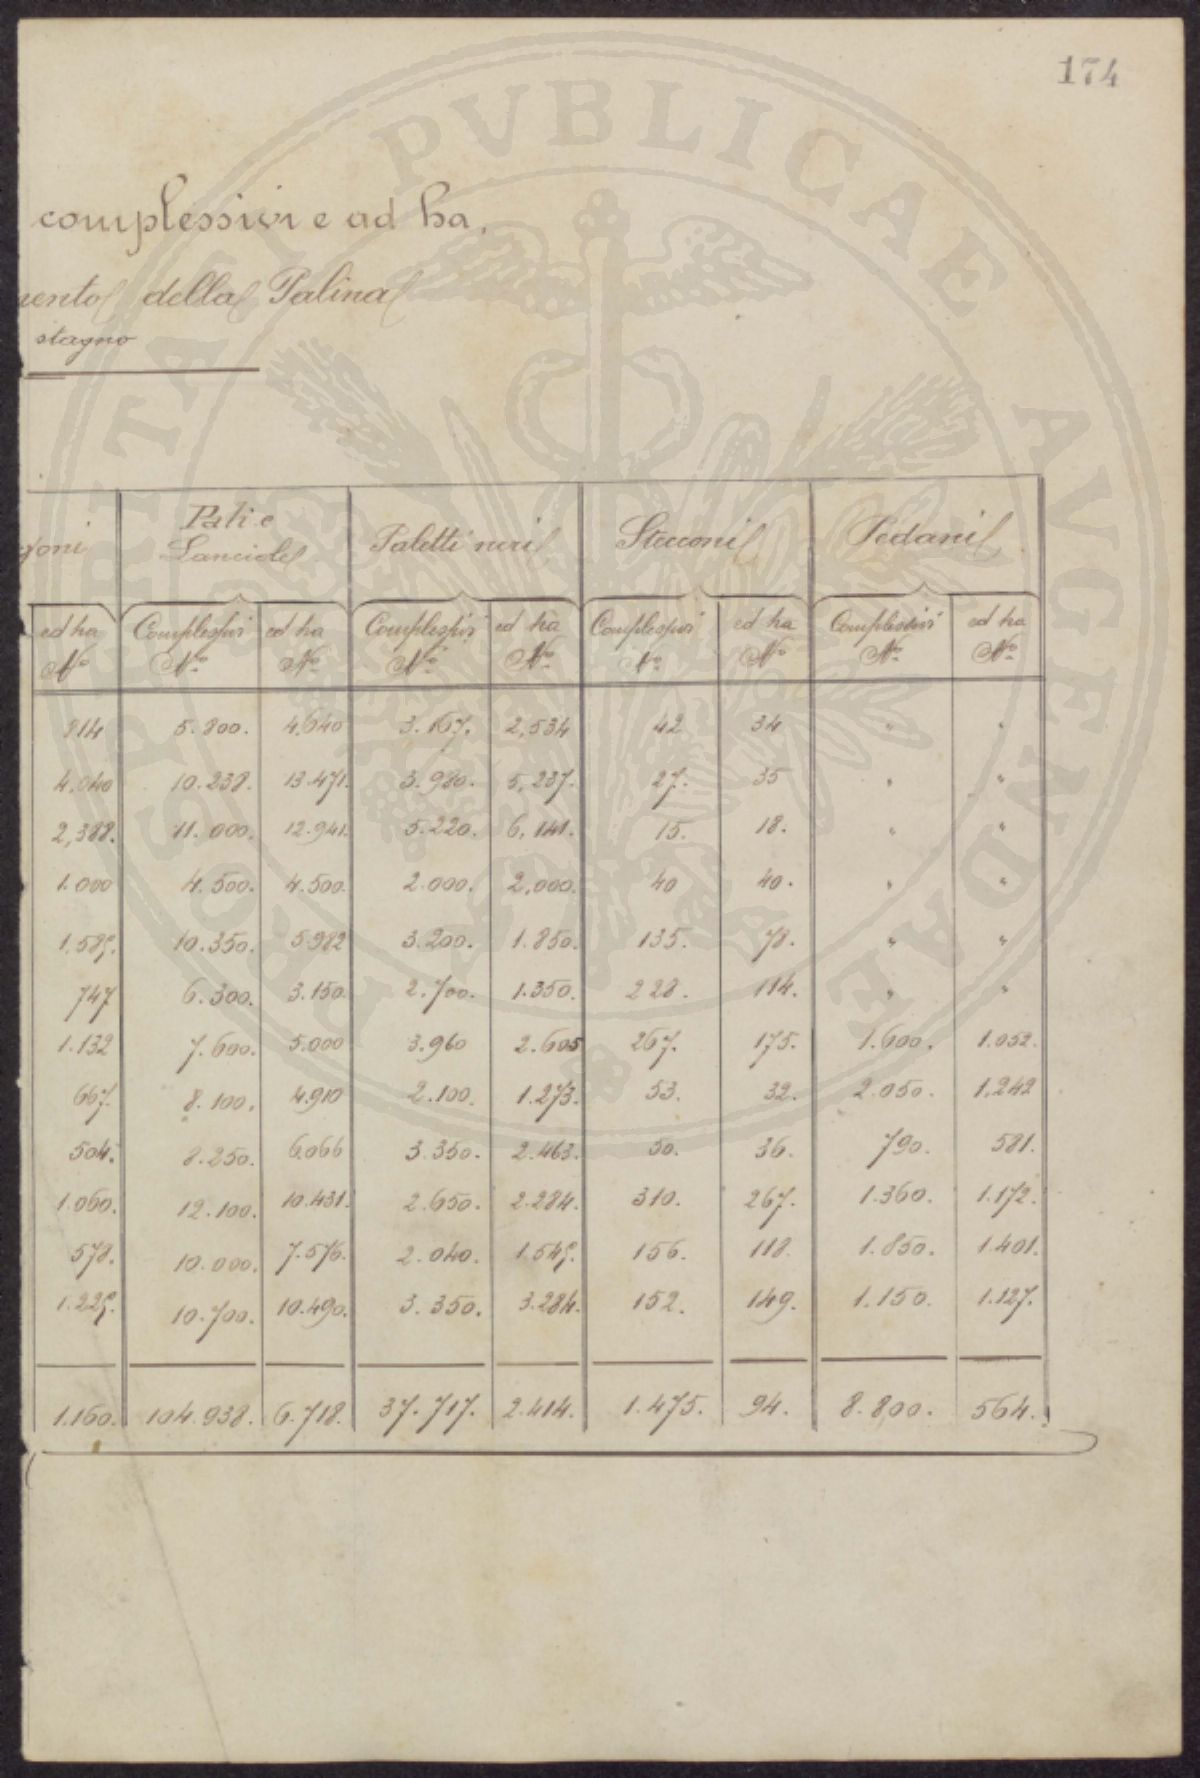 174
complessivi e ad ha.
della Palina
stagno
Pali e
Lanciole
Paletti neri
Stecconi
Pedani
ed ha
Complessivi
ed ha
Complessivi
ed ha
Complessivi
ed ha
Complessivi
ed ha
No
No
No
No
No
No
No
No
No
814 5.800. 4,640 3.167. 2,534 42 34 " "
4.040 10.238. 13.471. 3.980. 5,237. 27. 35 " "
2,388. 11.000. 12.941. 5.220. 6,141. 15. 18. " "
1.000 4.500. 4.500. 2.000. 2,000. 40 40. " "
1.585. 10.350. 5.982 3.200. 1.850. 135. 78. " "
747 6.300. 3.150 2.700. 1.350. 228. 114. " "
1.132 7.600. 5.000 3.960 2.605 267. 175. 1.600. 1.052.
667. 8.100. 4.910 2.100. 1.273. 53. 32. 2.050. 1.242
504. 8.250. 6.066 3.350. 2.463. 50. 36. 790. 581.
1.060. 12.100. 10.431. 2.650. 2.284. 310. 267. 1.360. 1.172.
578. 10.000. 7.576. 2.040. 1.545. 156. 118. 1.850. 1.401.
1.225. 10.700. 10.490. 3.350. 3.284. 152. 149. 1.150. 1.127.
1.160. 104.938. 6.718. 37.717. 2.414. 1.475. 94. 8.800. 564.
PUBLICAE AUGENDAE